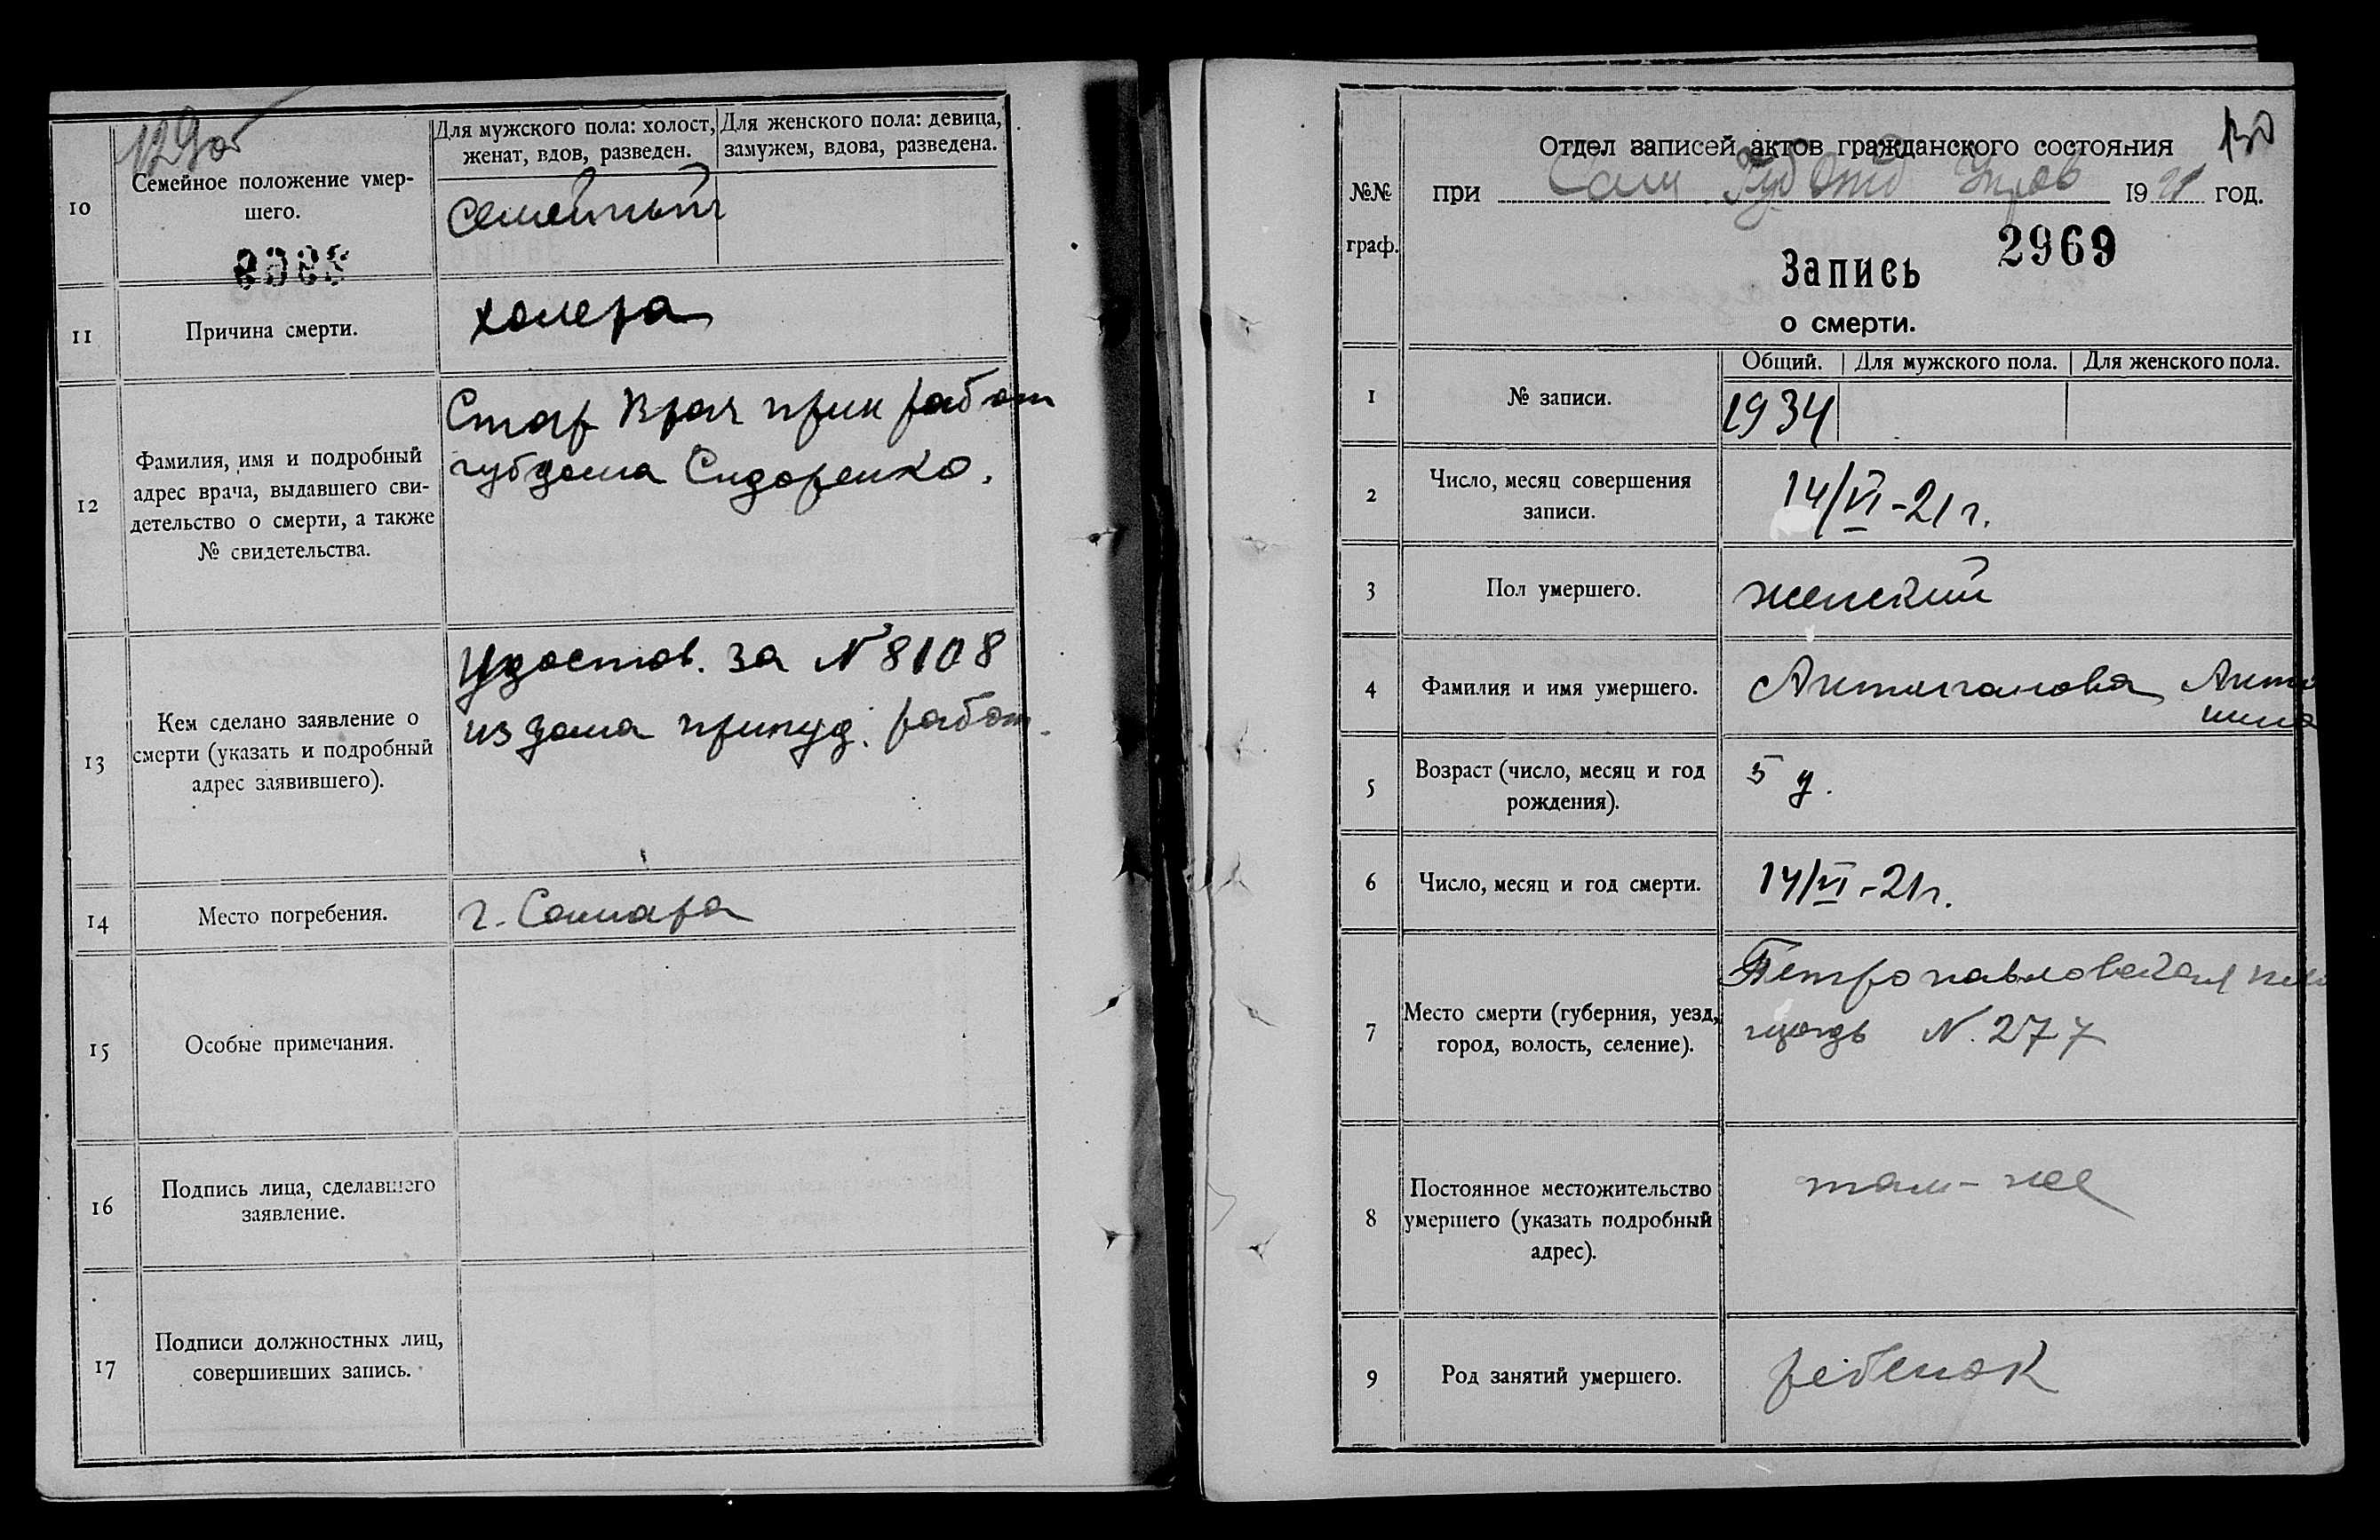 129об
10
Семейное положение умер-
шего.
Для мужского пола: холост,
женат, вдов, разведен.
Для женского пола: девица,
замужем, вдова, разведена.
Семейный
11
Причина смерти.
холера
12
Фамилия, имя и подробный
адрес врача, выдавшего сви-
детельство о смерти, а также
№ свидетельства.
Стар Врач прин работ
губдома Сидоренко.
13
Кем сделано заявление о
смерти (указать и подробный
адрес заявившего).
Удостов. за № 8108
из дома принуд. работ.
14
Место погребения.
г. Самара
15
Особые примечания.
16
Подпись лица, сделавшего
заявление.
17
Подписи должностных лиц,
совершивших запись.
130
Отдел записей актов гражданского состояния
№№
граф.
при Сам Губ Отд Управ 1921 год.
2969
Запись
о смерти.
Общий. Для мужского пола. Для женского пола.
1
№ записи.
1934
2
Число, месяц совершения
записи.
14/VI-21 г.
3
Пол умершего.
женский
4
Фамилия и имя умершего.
5
Возраст (число, месяц и год
рождения).
5
6
Число, месяц и год смерти.
14/VI-21 г.
7
Место смерти (губерния, уезд,
город, волость, селение).
Петропавловская пло
щадь N. 277
8
Постоянное местожительство
умершего (указать подробный
адрес).
там-же
9
Род занятий умершего.
ребенок